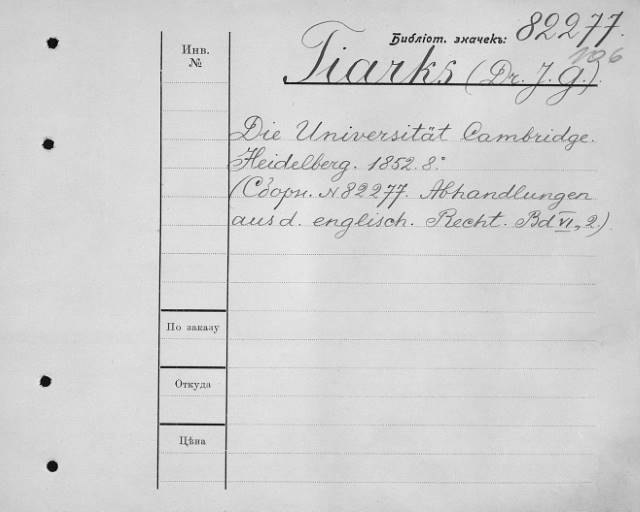 Библіот. значекъ: 82277.
106
Инв.
№
Tiarks (Dr. J. G.).
Die Universität Cambridge.
Heidelberg. 1852. 8.°
(Сборн. № 82277. Abhandlungen
aus d. englisch. Recht. Bd VI, 2.)
По заказу
Откуда
Цѣна